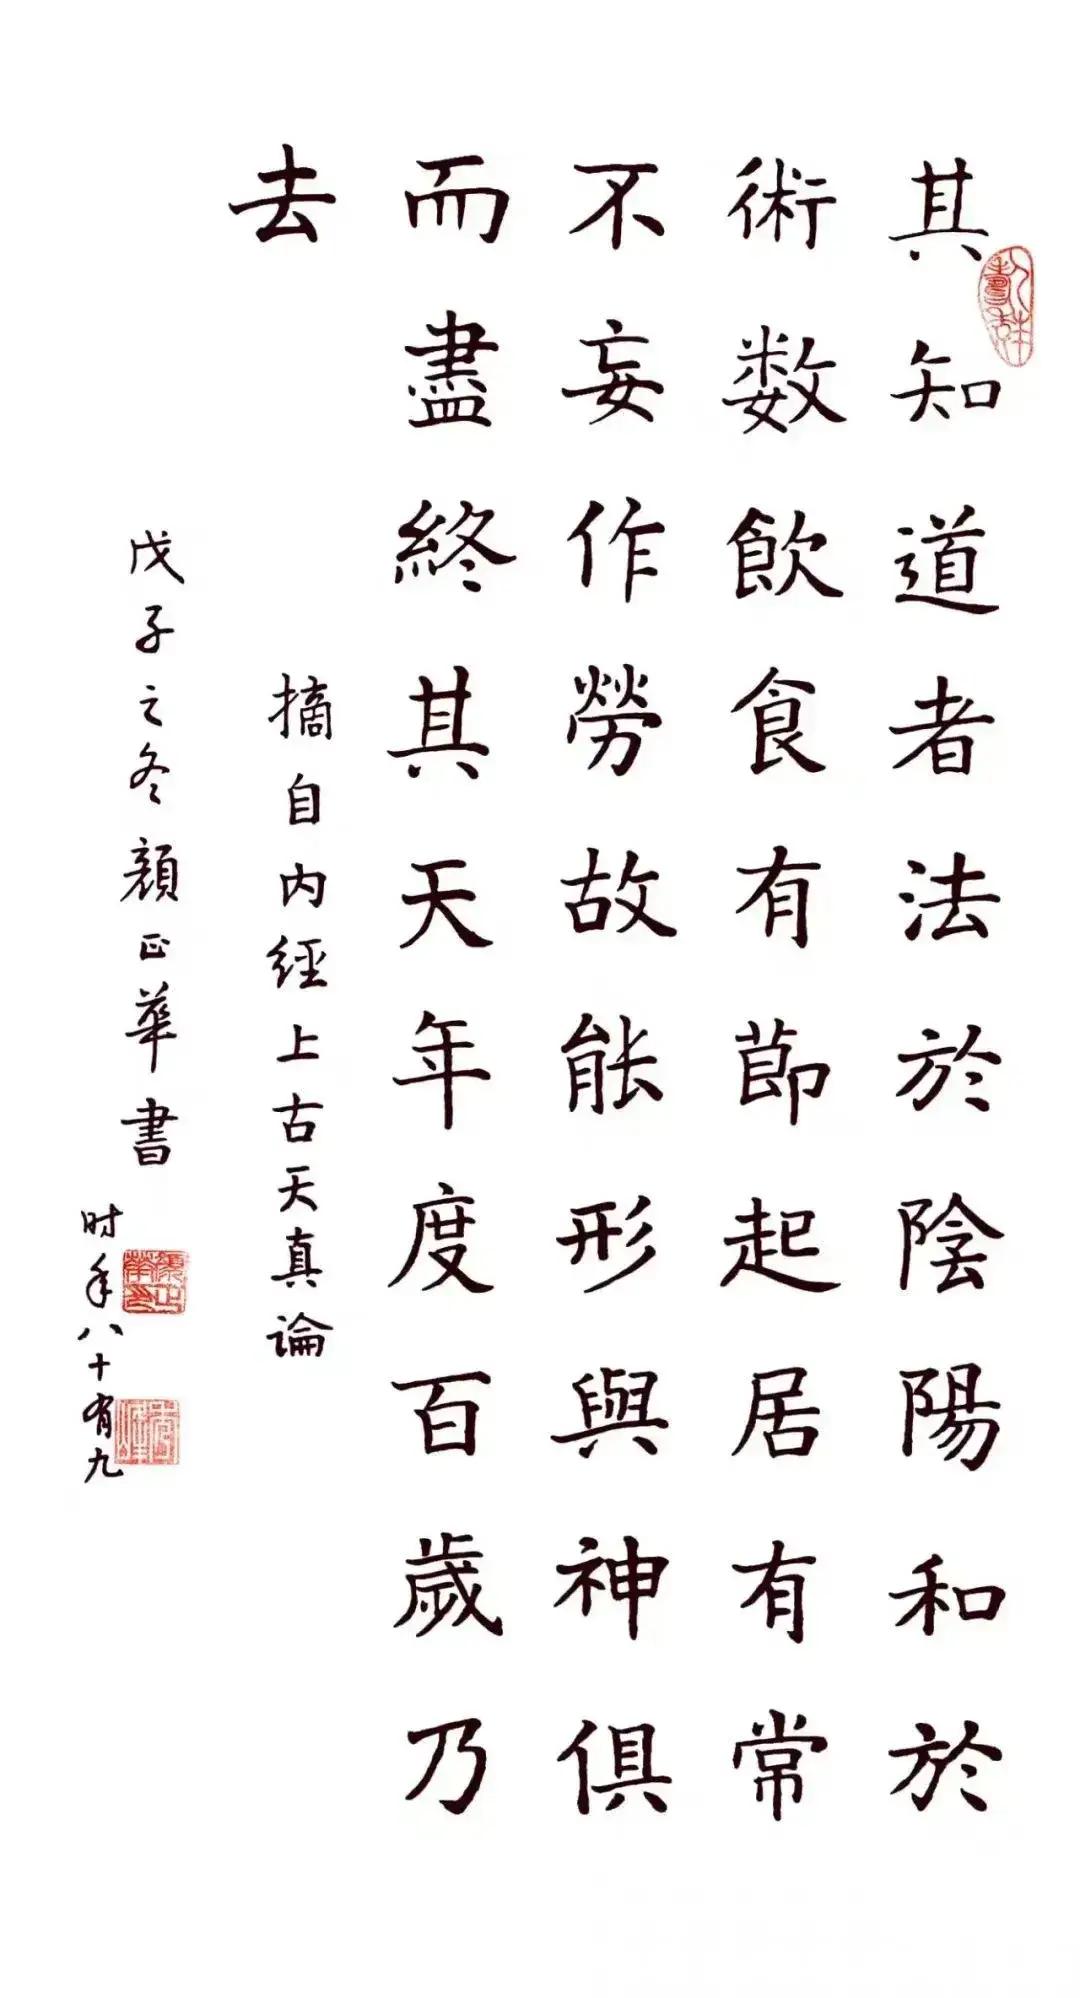 其知道者法於陰陽和於
術数飲食有節起居有常
不妄作勞故能形與神俱
而盡終其天年度百歲乃
去
摘自内經上古天真論
戊子之冬顏正華書
时年八十有九